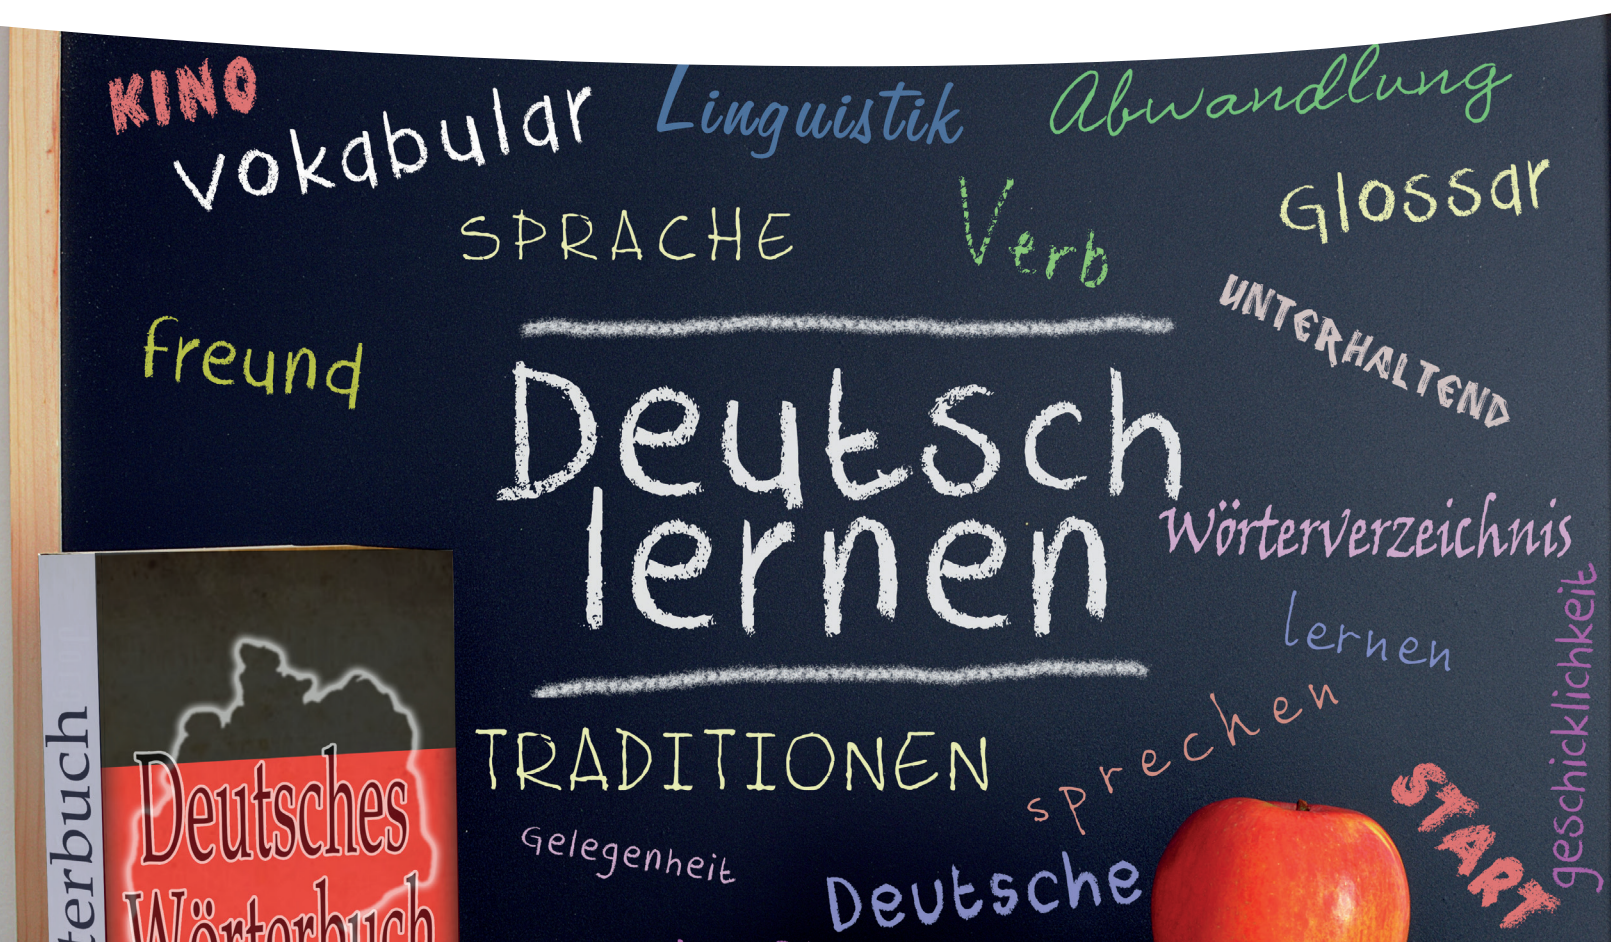 KINO
vokabular
Linguistik
Abwandlung
SPRACHE
Verb
Glossar
UNTERHALTEND
freund
Deutsch
lernen
Wörterverzeichnis
lernen
geschicklichkeit
TRADITIONEN
sprechen
START
Gelegenheit
Deutsche
terbuch
Deutsches
Wörterbuch